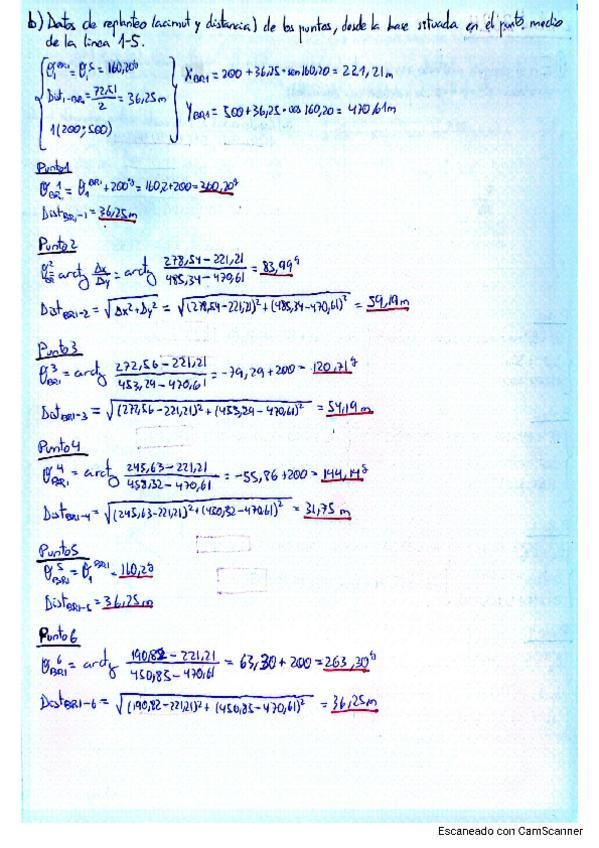 b) Datos de replanteo (acimut y distancia) de los puntos, desde la base situada en el punto medio
de la linea 1-5.
θ₁ᴮᴿ¹ = θ₁⁵ = 160,20g
Dist₁₋BR₁ = 72,51/2 = 36,25m
1(200;500)
XBR1 = 200 + 36,25 · sen 160,20 = 221,21m
YBR1 = 500 + 36,25 · cos 160,20 = 470,61m
Punto 1
θBR₁¹ = θ₁ᴮᴿ¹ + 200g = 160,2 + 200 = 360,20g
DistBR1-1 = 36,25m
Punto 2
θBR² = arctg Δx/Δy = arctg (278,54 - 221,21)/(485,34 - 470,61) = 83,99g
DistBR1-2 = √(Δx² + Δy²) = √((278,54 - 221,21)² + (485,34 - 470,61)²) = 59,19m
Punto 3
θBR1³ = arctg (272,56 - 221,21)/(453,29 - 470,61) = -79,29 + 200 = 120,71g
DistBR1-3 = √((272,56 - 221,21)² + (453,29 - 470,61)²) = 54,19m
Punto 4
θBR1⁴ = arctg (245,63 - 221,21)/(450,32 - 470,61) = -55,86 + 200 = 144,14g
DistBR1-4 = √((245,63 - 221,21)² + (450,32 - 470,61)²) = 31,75m
Punto 5
θBR1⁵ = θ₁ᴮᴿ¹ = 160,2g
DistBR1-5 = 36,25m
Punto 6
θBR1⁶ = arctg (190,82 - 221,21)/(450,85 - 470,61) = 63,30 + 200 = 263,30g
DistBR1-6 = √((190,82 - 221,21)² + (450,85 - 470,61)²) = 36,25m
Escaneado con CamScanner